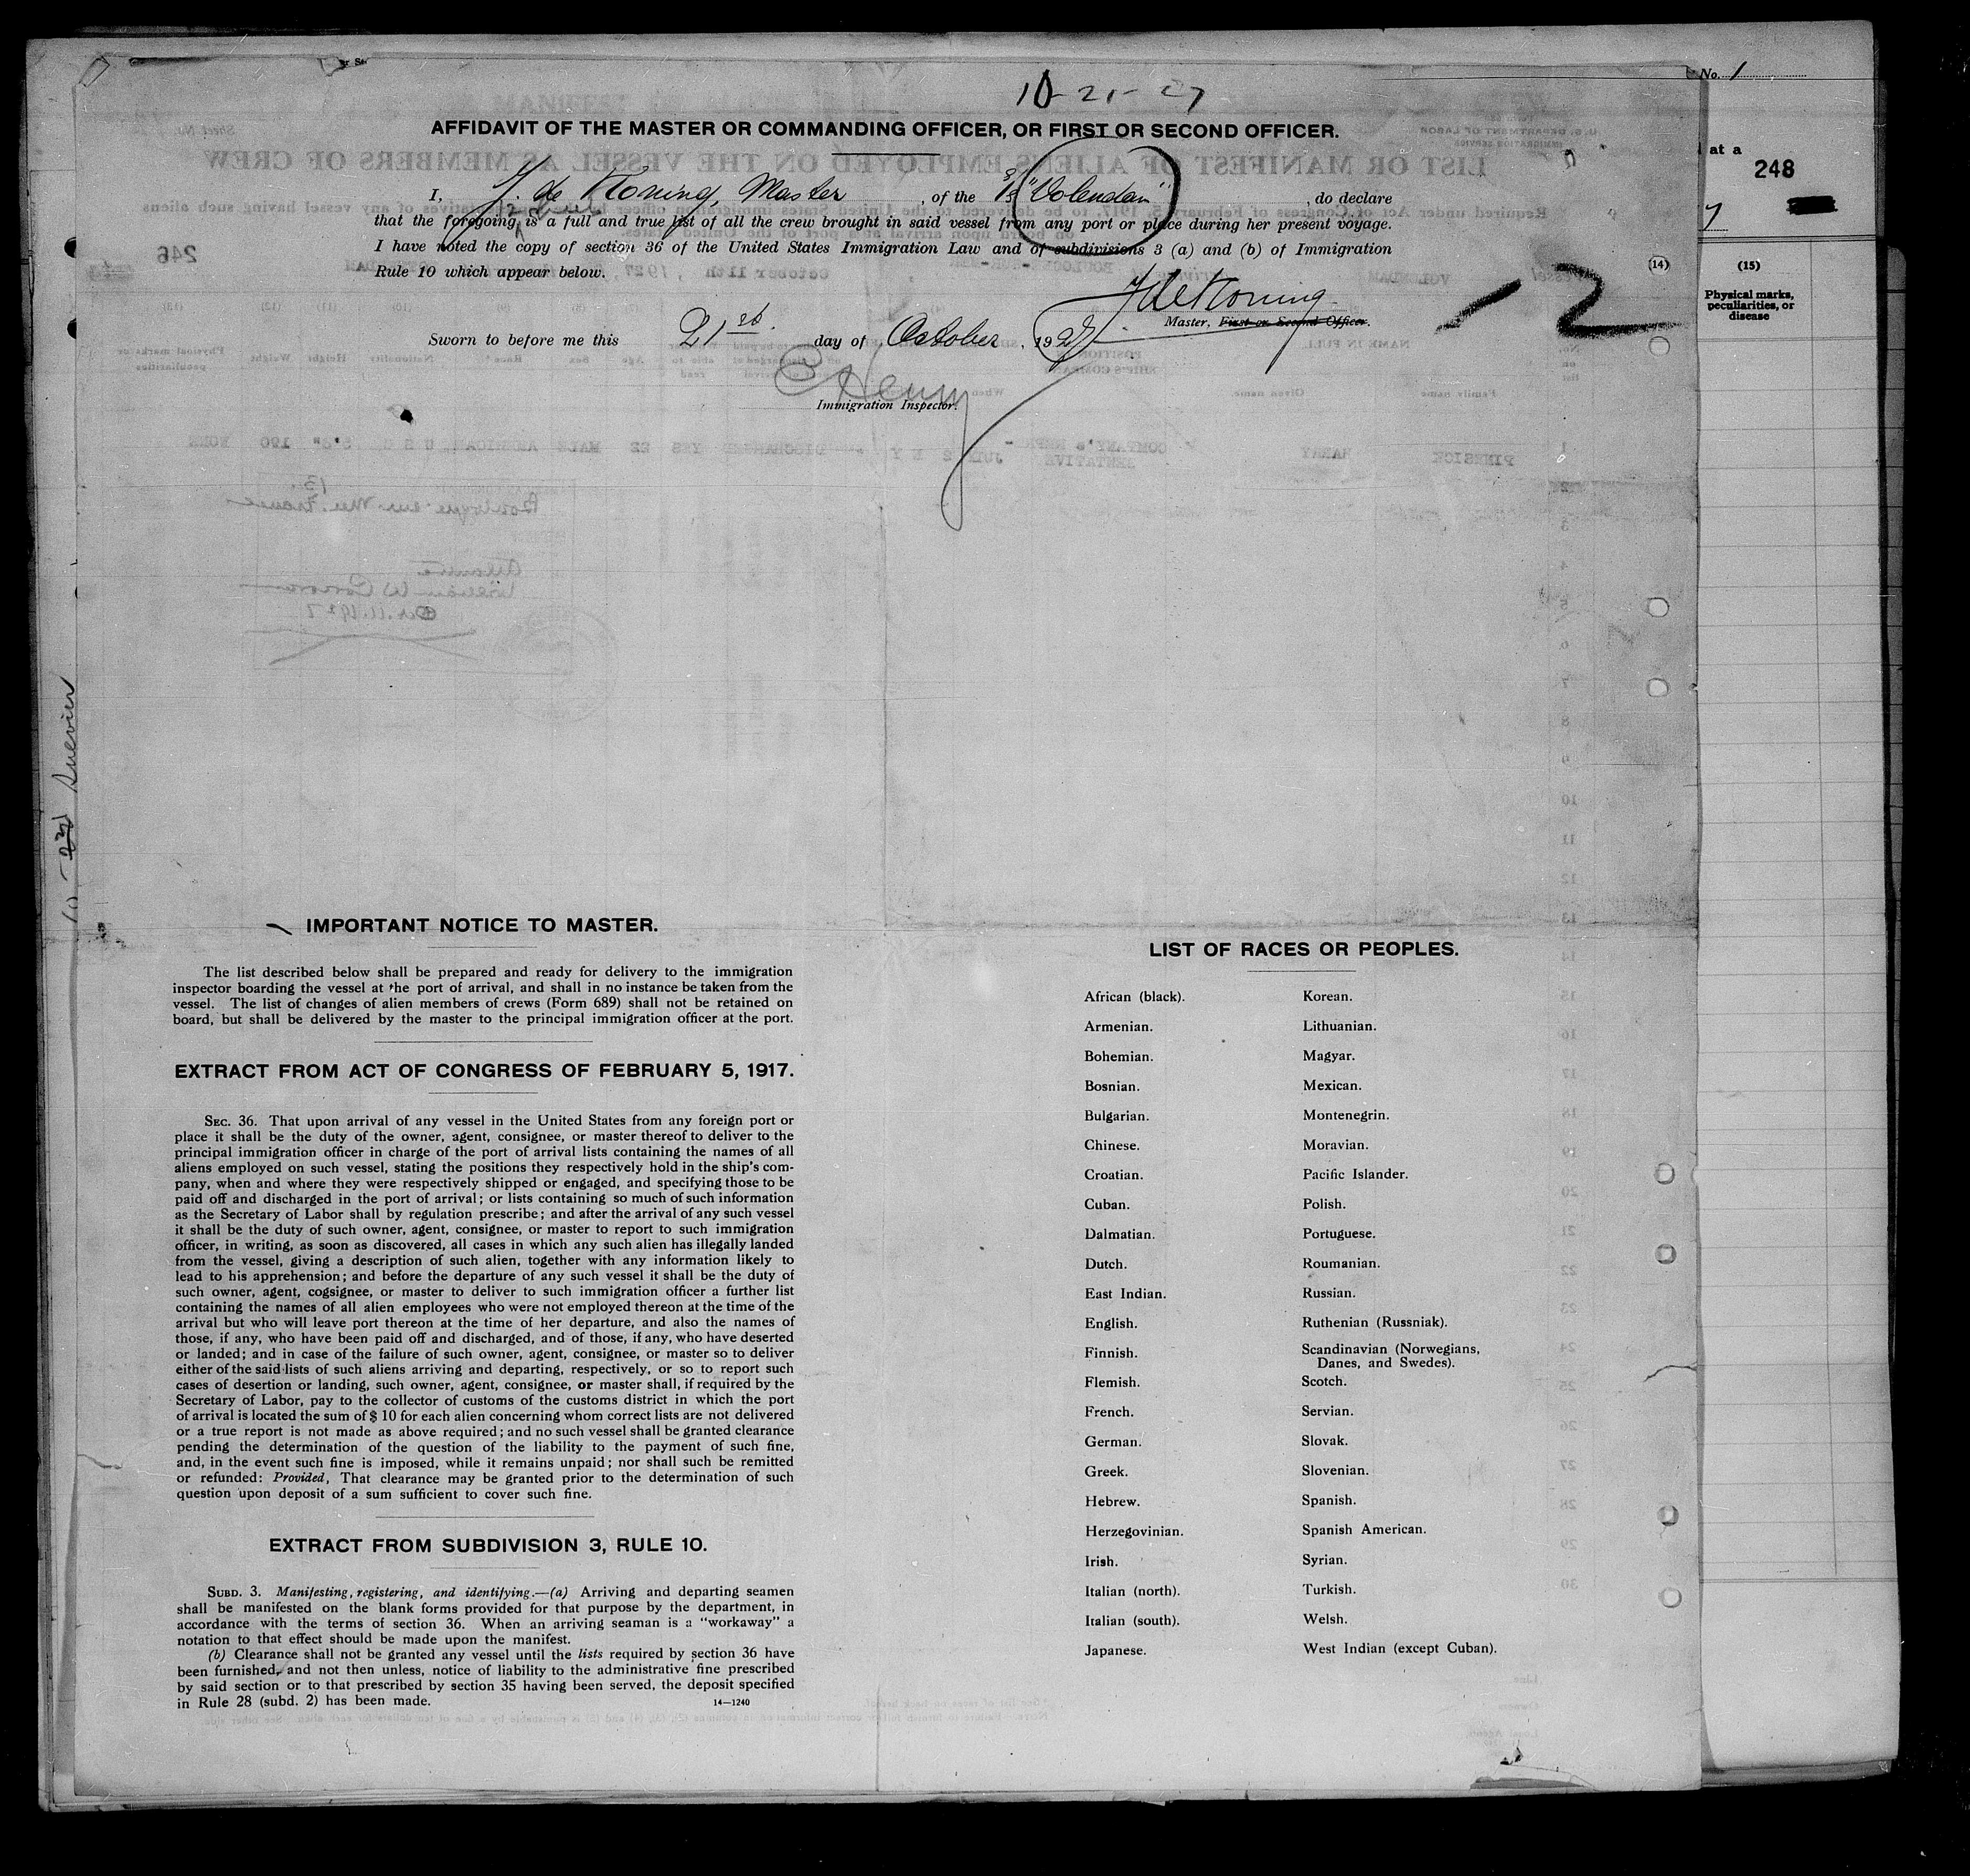 No. 1
10-21-27
AFFIDAVIT OF THE MASTER OR COMMANDING OFFICER, OR FIRST OR SECOND OFFICER.
at a
248
I, J. de Koning, Master, of the S/S "Volendam", do declare
that the foregoing is a full and true list of all the crew brought in said vessel from any port or place during her present voyage.
I have noted the copy of section 36 of the United States Immigration Law and of subdivisions 3 (a) and (b) of Immigration
Rule 10 which appear below.
246
(14)
(15)
Physical marks,
peculiarities, or
disease
J de Koning
Master, First or Second Officer.
12
Sworn to before me this 21st day of October, 1927.
Henry
Immigration Inspector.
IMPORTANT NOTICE TO MASTER.
The list described below shall be prepared and ready for delivery to the immigration
inspector boarding the vessel at the port of arrival, and shall in no instance be taken from the
vessel. The list of changes of alien members of crews (Form 689) shall not be retained on
board, but shall be delivered by the master to the principal immigration officer at the port.
EXTRACT FROM ACT OF CONGRESS OF FEBRUARY 5, 1917.
SEC. 36. That upon arrival of any vessel in the United States from any foreign port or
place it shall be the duty of the owner, agent, consignee, or master thereof to deliver to the
principal immigration officer in charge of the port of arrival lists containing the names of all
aliens employed on such vessel, stating the positions they respectively hold in the ship's com-
pany, when and where they were respectively shipped or engaged, and specifying those to be
paid off and discharged in the port of arrival; or lists containing so much of such information
as the Secretary of Labor shall by regulation prescribe; and after the arrival of any such vessel
it shall be the duty of such owner, agent, consignee, or master to report to such immigration
officer, in writing, as soon as discovered, all cases in which any such alien has illegally landed
from the vessel, giving a description of such alien, together with any information likely to
lead to his apprehension; and before the departure of any such vessel it shall be the duty of
such owner, agent, cogsignee, or master to deliver to such immigration officer a further list
containing the names of all alien employees who were not employed thereon at the time of the
arrival but who will leave port thereon at the time of her departure, and also the names of
those, if any, who have been paid off and discharged, and of those, if any, who have deserted
or landed; and in case of the failure of such owner, agent, consignee, or master so to deliver
either of the said lists of such aliens arriving and departing, respectively, or so to report such
cases of desertion or landing, such owner, agent, consignee, or master shall, if required by the
Secretary of Labor, pay to the collector of customs of the customs district in which the port
of arrival is located the sum of $ 10 for each alien concerning whom correct lists are not delivered
or a true report is not made as above required; and no such vessel shall be granted clearance
pending the determination of the question of the liability to the payment of such fine,
and, in the event such fine is imposed, while it remains unpaid; nor shall such be remitted
or refunded: Provided, That clearance may be granted prior to the determination of such
question upon deposit of a sum sufficient to cover such fine.
EXTRACT FROM SUBDIVISION 3, RULE 10.
SUBD. 3. Manifesting, registering, and identifying.—(a) Arriving and departing seamen
shall be manifested on the blank forms provided for that purpose by the department, in
accordance with the terms of section 36. When an arriving seaman is a "workaway" a
notation to that effect should be made upon the manifest.
(b) Clearance shall not be granted any vessel until the lists required by section 36 have
been furnished, and not then unless, notice of liability to the administrative fine prescribed
by said section or to that prescribed by section 35 having been served, the deposit specified
in Rule 28 (subd. 2) has been made.
14—1240
LIST OF RACES OR PEOPLES.
African (black).
Armenian.
Bohemian.
Bosnian.
Bulgarian.
Chinese.
Croatian.
Cuban.
Dalmatian.
Dutch.
East Indian.
English.
Finnish.
Flemish.
French.
German.
Greek.
Hebrew.
Herzegovinian.
Irish.
Italian (north).
Italian (south).
Japanese.
Korean.
Lithuanian.
Magyar.
Mexican.
Montenegrin.
Moravian.
Pacific Islander.
Polish.
Portuguese.
Roumanian.
Russian.
Ruthenian (Russniak).
Scandinavian (Norwegians,
Danes, and Swedes).
Scotch.
Servian.
Slovak.
Slovenian.
Spanish.
Spanish American.
Syrian.
Turkish.
Welsh.
West Indian (except Cuban).